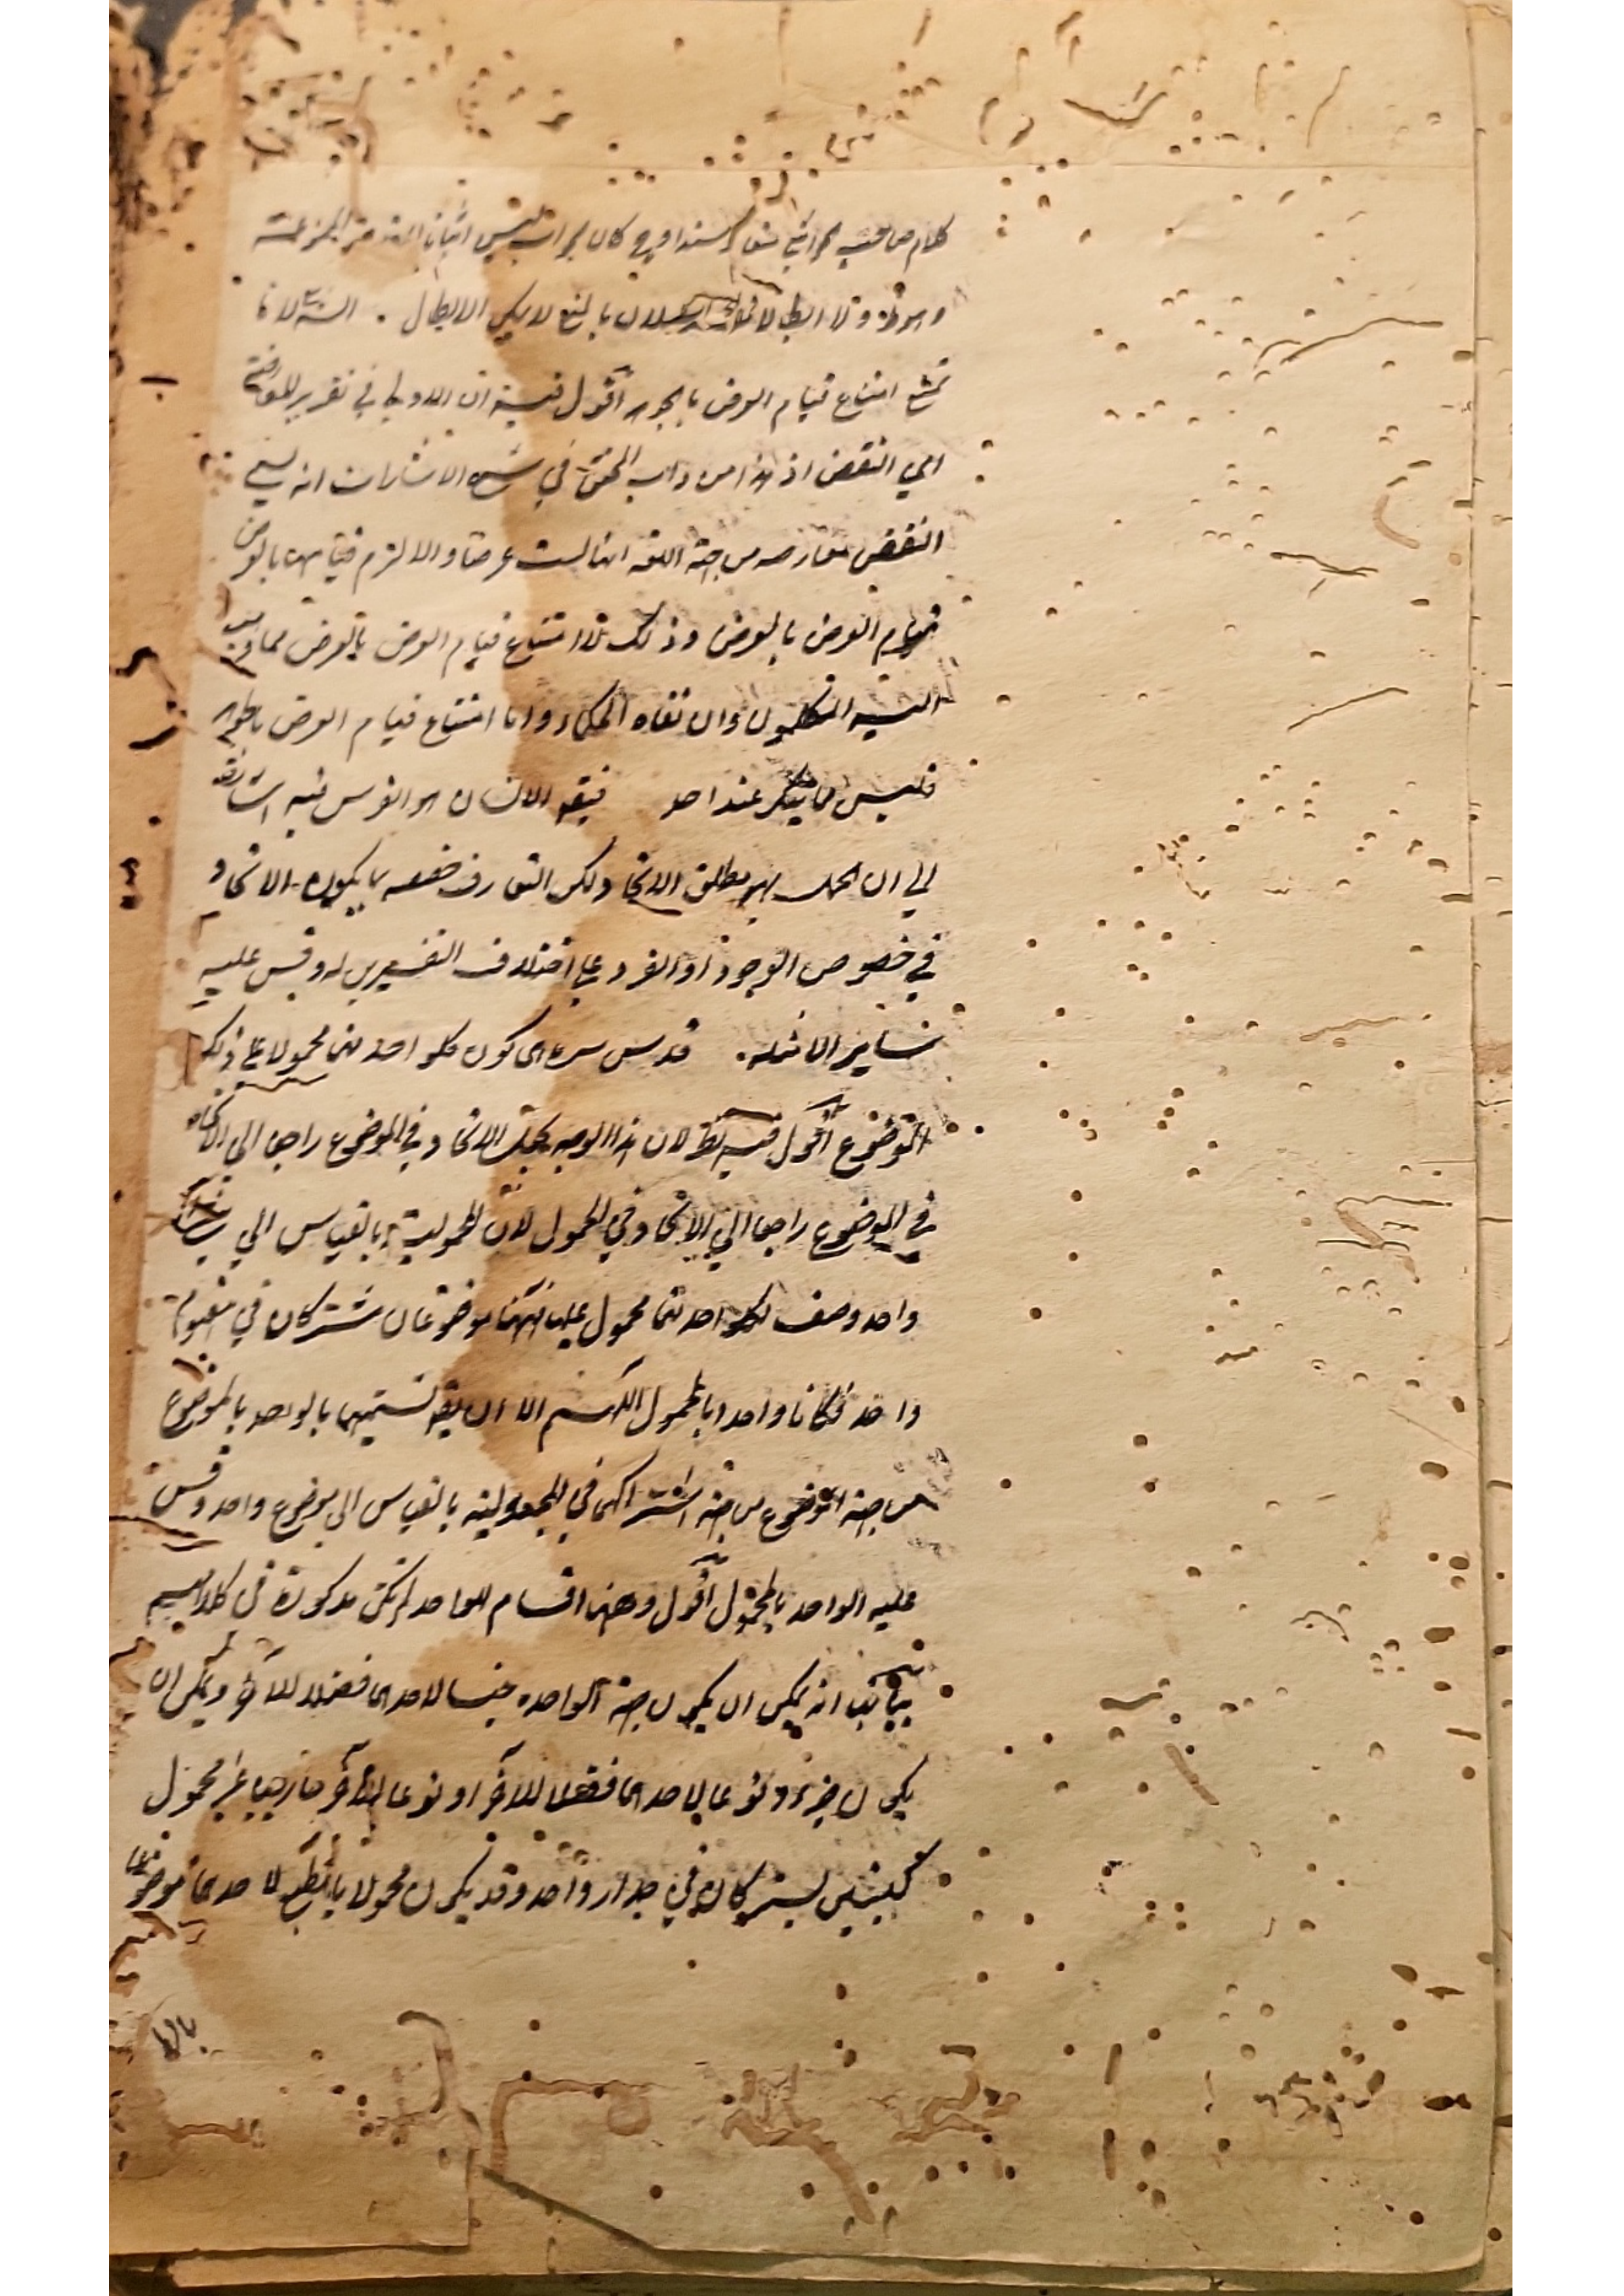 كلام صاحب
وهو ظ ولا ابطالا لان بالمنع لا يمكن الابطال . لانا
نمنع امتناع قيام العرض بالجوهر اقول فيه ان الاولى في تقرير المعارضة
اي النقض اذ هذا من داب المحقق في شرح الاشارات انه يسمي
النقض معارضه من جهة انها ليست عرضا والا لزم قيامها بالعرض
قيام العرض بالعرض وذلك لان امتناع قيام العرض بالعرض مما ذهب
اليه المتكلمون وان نفاه الحكماء واما امتناع قيام العرض بالجوهر
فليس مما ينكر عند احد فيقه الانسان هو الفرس فيه اشارة
الي ان الحمل هو مطلق الاتحاد ولكن التعارف خصصه بما يكون الاتحاد
في خصوص الوجود او الفرد على اختلاف التفسيرين له وقس عليه
ساير الامثله . قدس سره اى كون كلواحد منهما محمولا على ذلك
الموضوع اقول فيه نظر لان هذا الوجه يجعل الاتحاد في الموضوع راجعا الي الاتحاد
في الموضوع راجعا الي الاتحاد في المحمول لان المحمولية بالقياس الي
واحد وصف لكلواحد منهما محمول عليه فهما موضوعان مشتركان في مفهوم
واحد فكانا واحدا بالمحمول اللهم الا ان يقه تسميتهما بالواحد بالموضوع
من جهة الموضوع من جهة اشتراكهما في المحمولية بالقياس الى موضوع واحد وقس
عليه الواحد بالمحمول اقول وههنا اقسام للواحد لم تكن مذكورة في كلامهم
بيانها انه يمكن ان يكون جهة الواحده جنسا لاحدهما فصلا للآخر ويمكن ان
يكون جزء ونوعا لاحدهما فصلا للآخر او نوعا للآخر خارجيا غير محمول
كبيتين يشتركان في جدار واحد وقد يكون محمولا بالطبع لاحدهما موضوعا